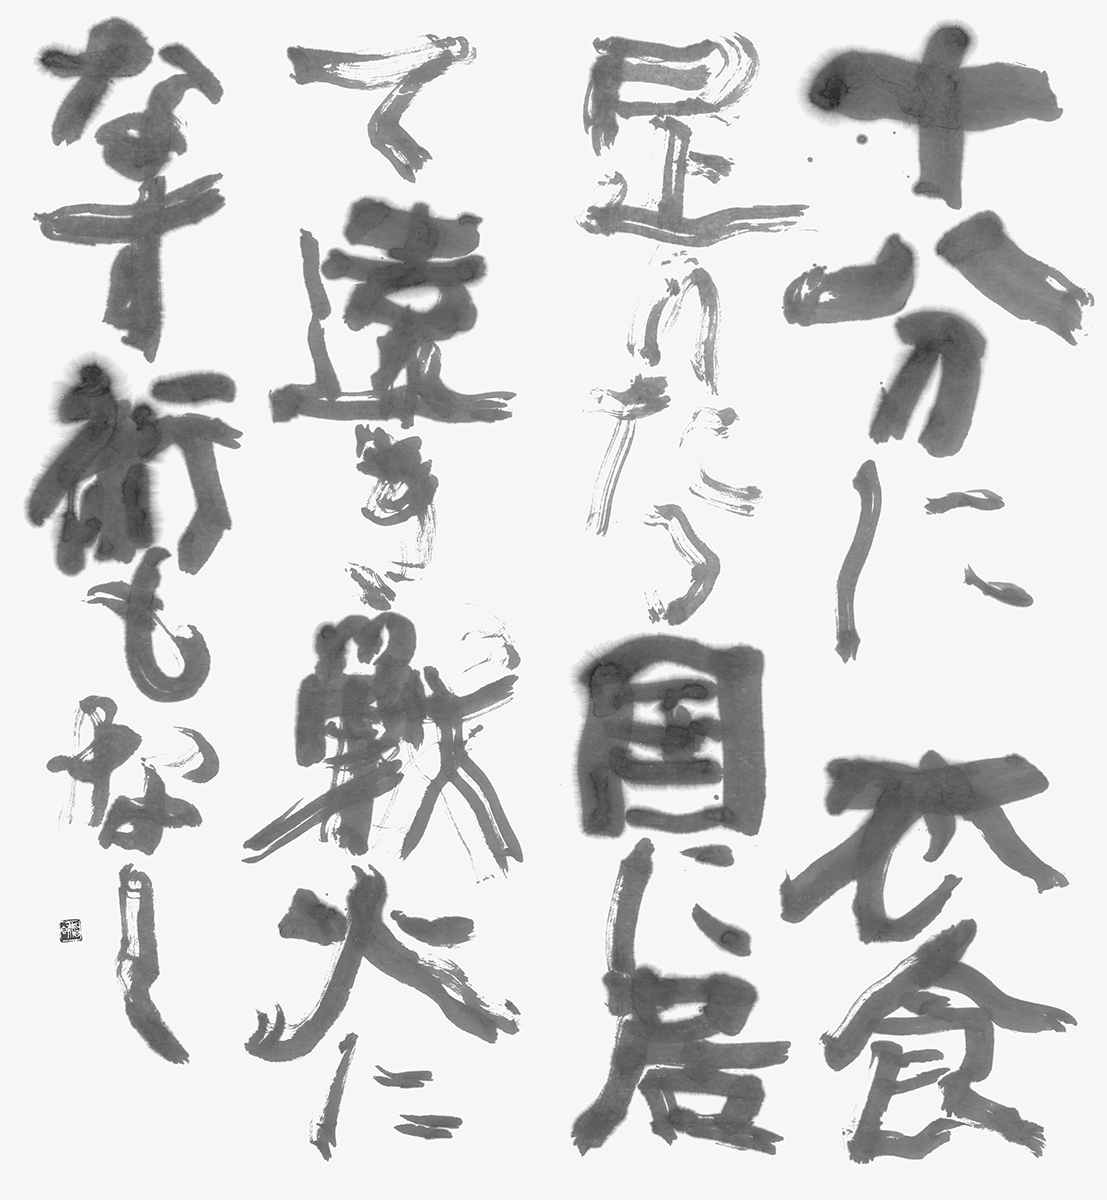 十分に 衣食
足りたる国に居
て遠き戦火に
なす術もなし